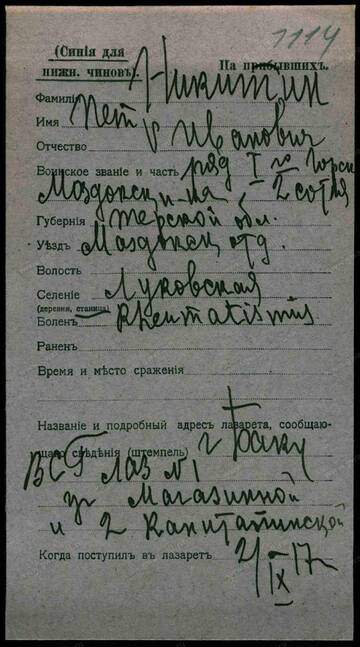 1114
(Синія для На прибывшихъ.
нижн. чиновъ).
Фамилія Никитин
Имя Петр
Отчество Иванович
Воинское званіе и часть ряд I го Горск
Маздокск п-ка 2 сотня
Губернія Терской обл.
Уѣздъ Маздокск отд.
Волость
Селеніе Луковская
(деревня, станица)
Боленъ Rheumatismus
Раненъ
Время и мѣсто сраженія
Названіе и подробный адресъ лазарета, сообщаю-
щаго свѣдѣнія (штемпель) г Баку
ВСГ Лаз № 1
уг Магазинной
и 2 Канитапинской
Когда поступилъ въ лазаретъ 2/IX 17